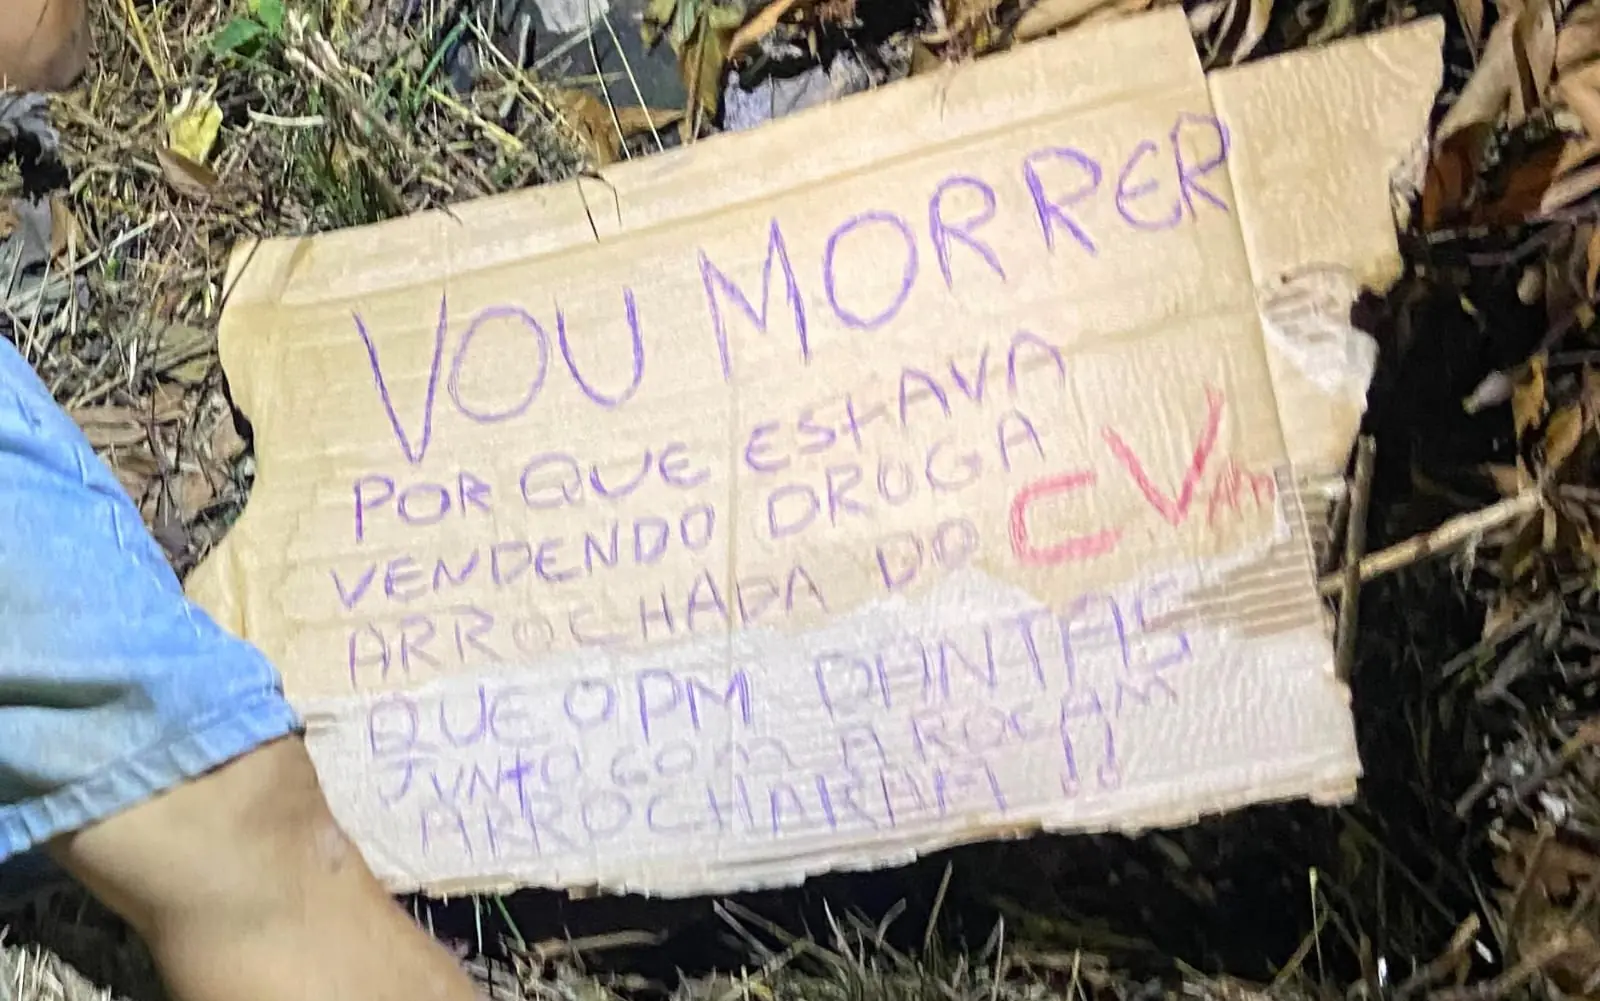 VOU MORRER
POR QUE ESTAVA
VENDENDO DROGA
ARROCHADA DO CV AM
QUE O PM DANTAS
JUNTO COM A ROCAM
ARROCHARAM !!